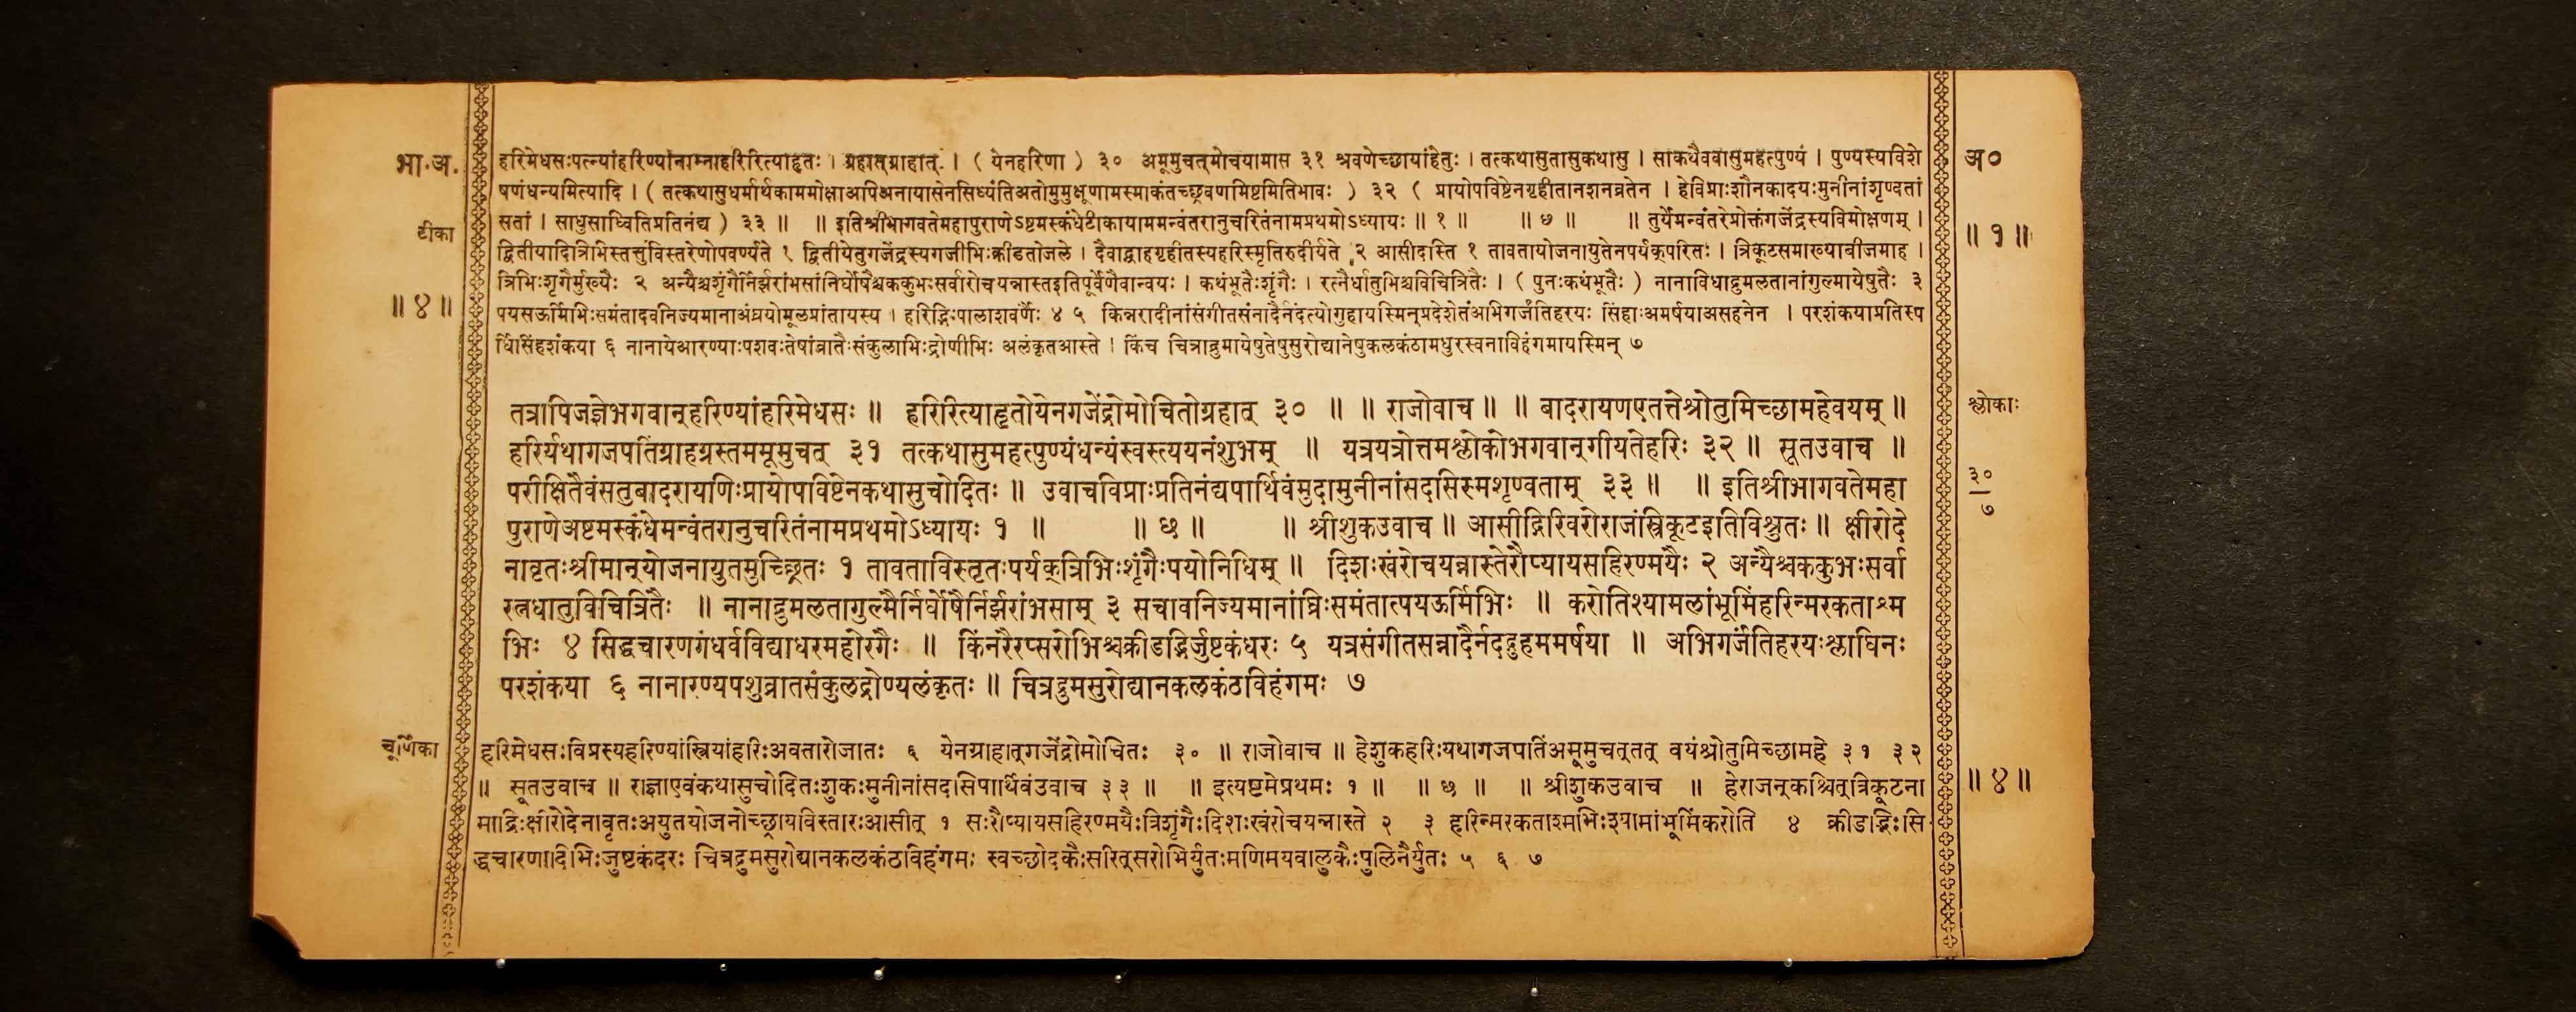 भा.अ.
टीका
॥ ४ ॥
हरिमेधसःपत्न्यांहरिण्यांनाम्नाहरिरित्याहृतः । ग्रहात्ग्राहात् । ( येनहरिणा ) ३० अमूमुचत्मोचयामास ३१ श्रवणेच्छायांहेतुः । तत्कथासुतासुकथासु । साकथैववासुमहत्पुण्यं । पुण्यस्यविशे
षणंधन्यमित्यादि । ( तत्कथासुधर्मार्थकाममोक्षाअपिअनायासेनसिध्यंतिअतोमुमुक्षूणामस्माकंतच्छ्रवणमिष्टमितिभावः ) ३२ ( प्रायोपविष्टेनगृहीतानशनव्रतेन । हेविप्राःशौनकादयःमुनीनांशृण्वतां
सतां । साधुसाध्वितिप्रतिनंद्य ) ३३ ॥ ॥ इतिश्रीभागवतेमहापुराणेऽष्टमस्कंधेटीकायाममन्वंतरानुचरितंनामप्रथमोऽध्यायः ॥ १ ॥ ॥ ७ ॥ ॥ तुर्येमन्वंतरेप्रोक्तंगजेंद्रस्यविमोक्षणम् ।
द्वितीयादित्रिभिस्तत्तुविस्तरेणोपवर्ण्यते १ द्वितीयेतुगजेंद्रस्यगजीभिःक्रीडतोजले । दैवाद्ग्राहगृहीतस्यहरिस्मृतिरुदीर्यते २ आसीदस्ति १ तावतायोजनायुतेनपर्यक्परितः । त्रिकूटसमाख्याबीजमाह ।
त्रिभिःशृंगैर्मुख्यैः २ अन्यैश्चशृंगैर्निर्झरांभसांनिर्घोषैश्चककुभःसर्वारोचयन्नास्तइतिपूर्वेणैवान्वयः । कथंभूतैःशृंगैः । रत्नैर्धातुभिश्चविचित्रितैः । ( पुनःकथंभूतैः ) नानाविधाद्रुमलतानांगुल्मायेषुतैः ३
पयसऊर्मिभिःसमंतादवनिज्यमानाअंघ्रयोमूलप्रांतायस्य । हरिद्भिःपालाशवर्णैः ४ ५ किन्नरादीनांसंगीतसंनादैर्नदंत्योगुहायस्मिन्प्रदेशेतंअभिगर्जंतिहरयः सिंहाःअमर्षयाअसहनेन । परशंकयाप्रतिस्प
र्धिसिंहशंकया ६ नानायेआरण्याःपशवःतेषांव्रातैःसंकुलाभिःद्रोणीभिः अलंकृतआस्ते । किंच चित्राद्रुमायेषुतेषुसुरोद्यानेषुकलकंठामधुरस्वनाविहंगमायस्मिन् ७
तत्रापिजज्ञेभगवान्हरिण्यांहरिमेधसः ॥ हरिरित्याहृतोयेनगजेंद्रोमोचितोग्रहात् ३० ॥ ॥ राजोवाच ॥ ॥ बादरायणएतत्तेश्रोतुमिच्छामहेवयम् ॥
हरिर्यथागजपतिंग्राहग्रस्तममूमुचत् ३१ तत्कथासुमहत्पुण्यंधन्यंस्वस्त्ययनंशुभम् ॥ यत्रयत्रोत्तमश्लोकोभगवान्गीयतेहरिः ३२ ॥ सूतउवाच ॥
परीक्षितैवंसतुबादरायणिःप्रायोपविष्टेनकथासुचोदितः ॥ उवाचविप्राःप्रतिनंद्यपार्थिवंमुदामुनीनांसदसिस्मशृण्वताम् ३३ ॥ ॥ इतिश्रीभागवतेमहा
पुराणेअष्टमस्कंधेमन्वंतरानुचरितंनामप्रथमोऽध्यायः १ ॥ ॥ ७ ॥ ॥ श्रीशुकउवाच ॥ आसीद्गिरिवरोराजंस्त्रिकूटइतिविश्रुतः ॥ क्षीरोदे
नावृतःश्रीमान्योजनायुतमुच्छ्रितः १ तावताविस्तृतःपर्यक्त्रिभिःशृंगैःपयोनिधिम् ॥ दिशःखंरोचयन्नास्तेरौप्यायसहिरण्मयैः २ अन्यैश्चककुभःसर्वा
रत्नधातुविचित्रितैः ॥ नानाद्रुमलतागुल्मैर्निर्घोषैर्निर्झरांभसाम् ३ सचावनिज्यमानांघ्रिःसमंतात्पयऊर्मिभिः ॥ करोतिश्यामलांभूमिंहरिन्मरकताश्म
भिः ४ सिद्धचारणगंधर्वविद्याधरमहोरगैः ॥ किंनरैरप्सरोभिश्चक्रीडद्भिर्जुष्टकंधरः ५ यत्रसंगीतसन्नादैर्नदद्गुहममर्षया ॥ अभिगर्जंतिहरयःश्लाघिनः
परशंकया ६ नानारण्यपशुव्रातसंकुलद्रोण्यलंकृतः ॥ चित्रद्रुमसुरोद्यानकलकंठविहंगमः ७
चूर्णिका
हरिमेधसःविप्रस्यहरिण्यांस्त्रियांहरिःअवतारोजातः ६ येनग्राहात्गजेंद्रोमोचितः ३० ॥ राजोवाच ॥ हेशुकहरिःयथागजपतिंअमूमुचत्तत् वयंश्रोतुमिच्छामहे ३१ ३२
॥ सूतउवाच ॥ राज्ञाएवंकथासुचोदितःशुकःमुनीनांसदसिपार्थिवंउवाच ३३ ॥ ॥ इत्यष्टमेप्रथमः १ ॥ ॥ ७ ॥ ॥ श्रीशुकउवाच ॥ हेराजन्कश्चित्त्रिकूटना
माद्रिःक्षीरोदेनावृतःअयुतयोजनोच्छ्रायविस्तारःआसीत् १ सःरौप्यायसहिरण्मयैःत्रिशृंगैःदिशःखंरोचयन्नास्ते २ ३ हरिन्मरकताश्मभिःश्यामांभूमिंकरोति ४ क्रीडद्भिःसि
द्धचारणादिभिःजुष्टकंदरः चित्रद्रुमसुरोद्यानकलकंठविहंगमः स्वच्छोदकैःसरित्सरोभिर्युतःमणिमयवालुकैःपुलिनैर्युतः ५ ६ ७
अ०
॥ १ ॥
श्लोकाः
३०
७
॥ ४ ॥